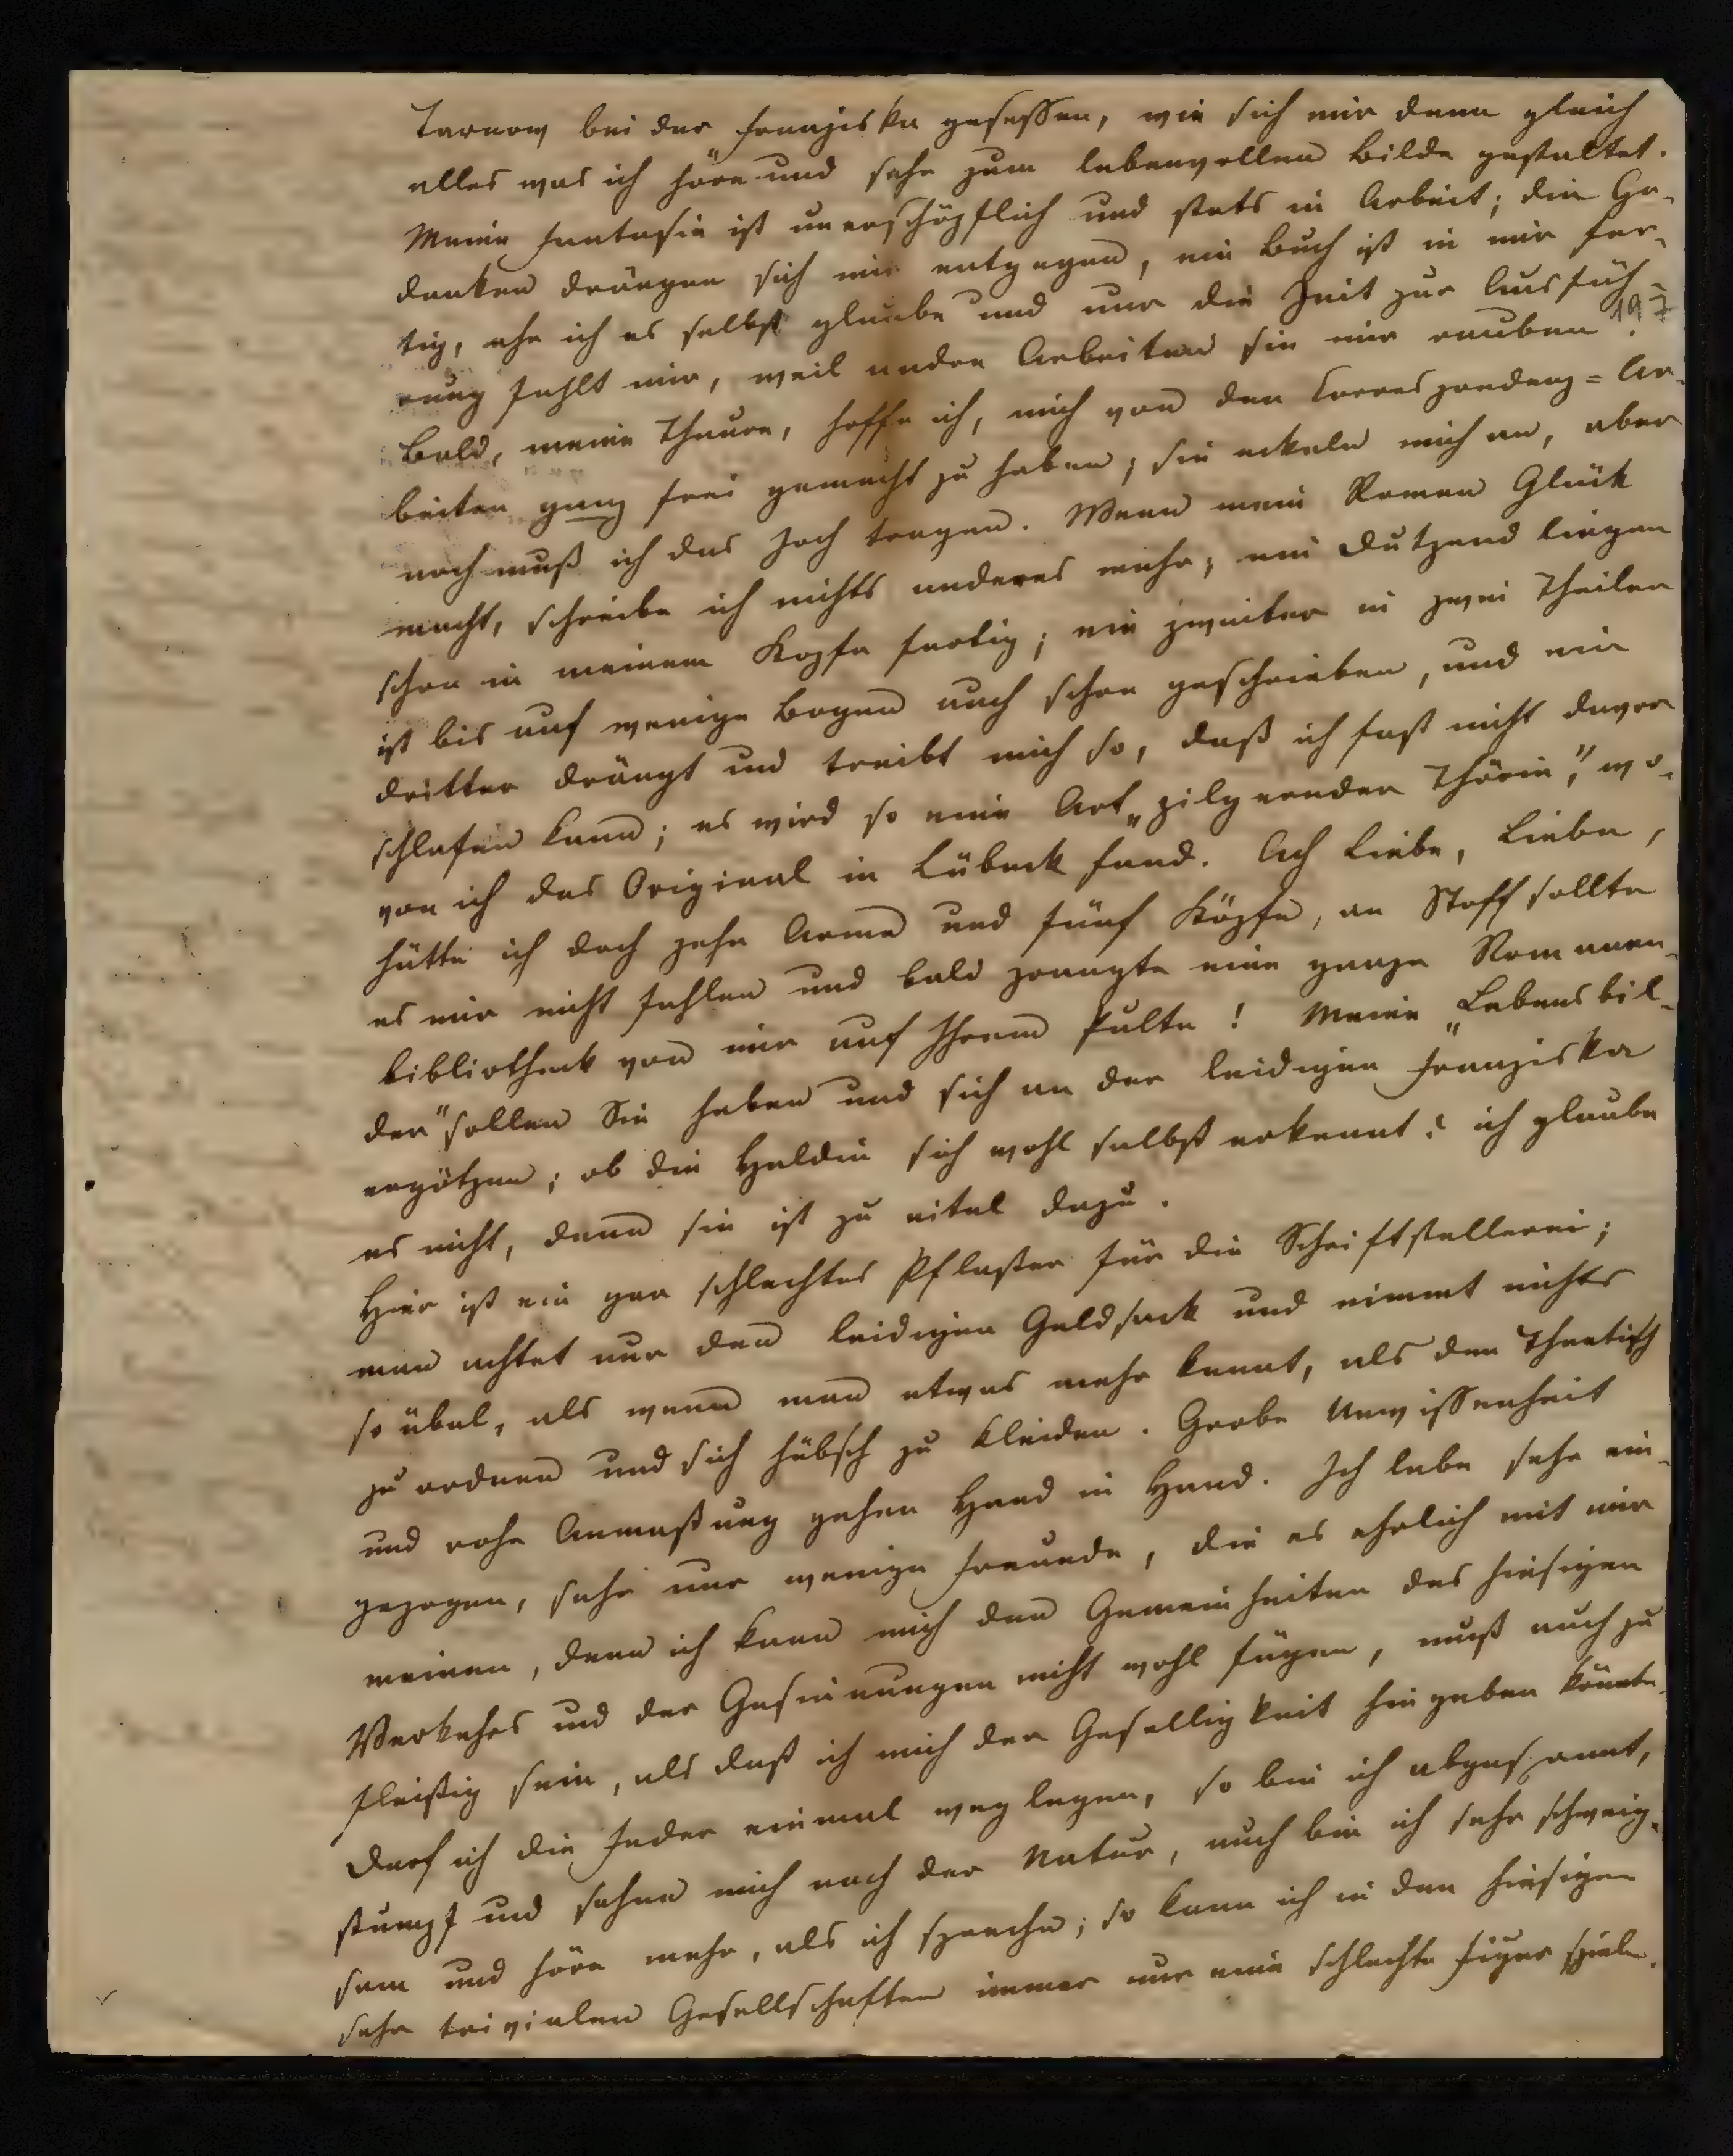 Tarnow bei der Franziska gesessen, wie sich mir denn gleich
alles was ich höre und sehe zum lebenvollen Bilde gestaltet.
Meine Fantasie ist unerschöpflich und stets in Arbeit; die Ge-
danken drängen sich mir entgegen, ein Buch ist in mir fer-
tig, ehe ich es selbst glaube und nur die Zeit zur Ausfüh-
197
rung fehlt mir, weil andre Arbeiten sie mir rauben.
Bald, meine Theure, hoffe ich, mich von den Correspondenz=Ar-
beiten ganz frei gemacht zu haben; sie eckeln mich an, aber
noch muß ich das Joch tragen. Wenn mein Roman Glück
macht, schreibe ich nichts anderes mehr; ein Dutzend liegen
schon in meinem Kopfe fertig; ein zweiter in zwei Theilen
ist bis auf wenige Bogen auch schon geschrieben, und ein
dritter drängt und treibt mich so, daß ich fast nicht davor
schlafen kann; es wird so eine Art „pilgernder Thörin", wo-
von ich das Original in Lübeck fand. Ach Liebe, Liebe,
hätte ich doch zehn Arme und fünf Köpfe, an Stoff sollte
es mir nicht fehlen und bald prangte eine ganze Romanen-
bibliotheck von mir auf Ihrem Pulte! Meine „Lebensbil-
der" sollen Sie haben und sich an der leidigen Franziska
ergötzen; ob die Heldin sich wohl selbst erkennt? ich glaube
es nicht, denn sie ist zu eitel dazu.
Hier ist ein gar schlechtes Pflaster für die Schriftstellerei;
man achtet nur den leidigen Geldsack und nimmt nichts
so übel, als wenn man etwas mehr kennt, als den Theetisch
zu ordnen und sich hübsch zu kleiden. Grobe Unwissenheit
und rohe Anmaßung gehen Hand in Hand. Ich lebe sehr ein-
gezogen, sehe nur wenige Freunde, die es ehrlich mit mir
meinen, denn ich kann mich den Gemeinheiten des hiesigen
Verkehrs und der Gesinnungen nicht wohl fügen, muß auch zu
fleißig sein, als daß ich mich der Geselligkeit hingeben könnte.
Darf ich die Feder einmal weglegen, so bin ich abgespannt,
stumpf und sehne mich nach der Natur, auch bin ich sehr schweig-
sam und höre mehr, als ich spreche; so kann ich in den hiesigen
sehr trivialen Gesellschaften immer nur eine schlechte Figur spielen.